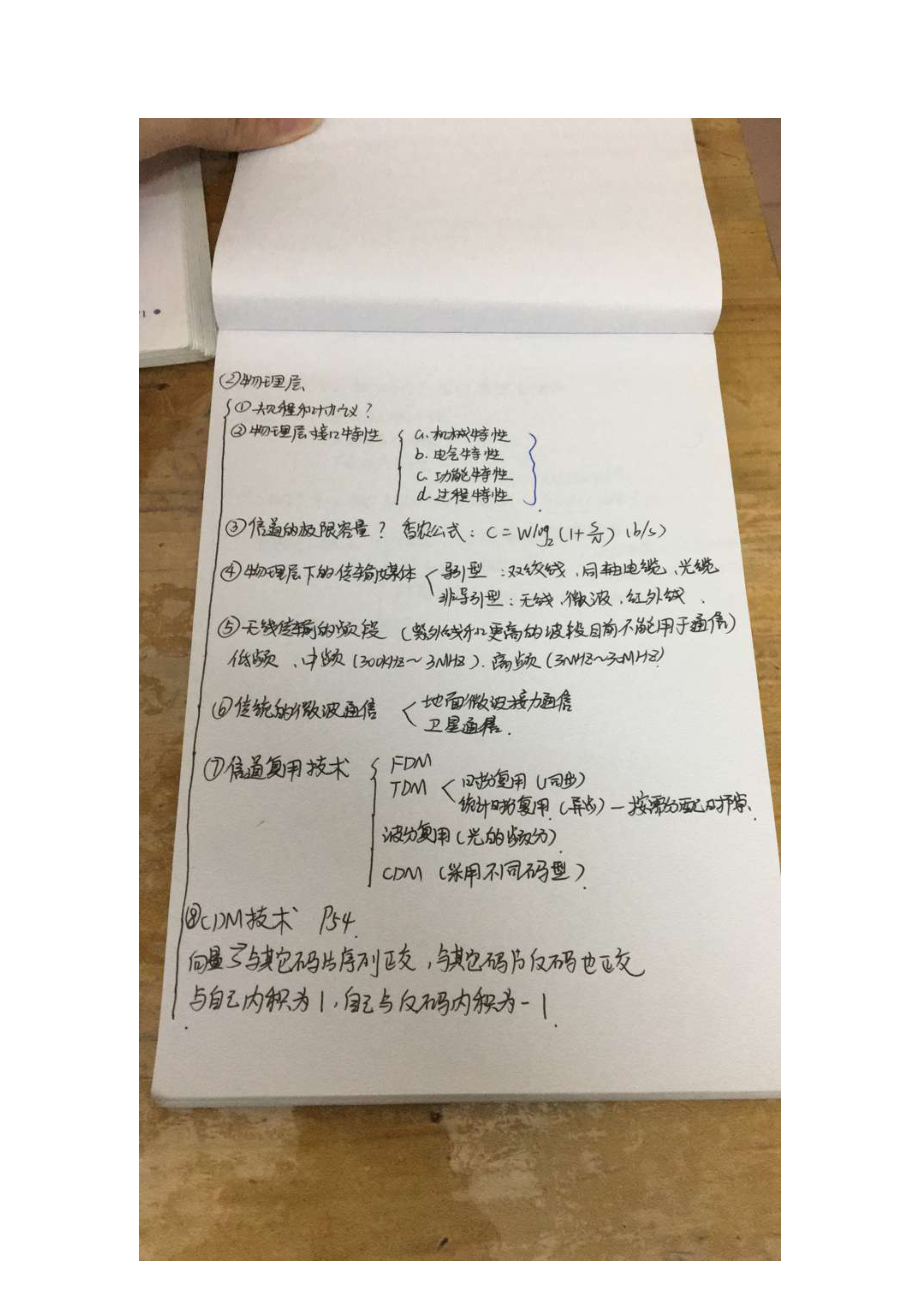 (2)物理层
①规程和协议？
②物理层接口特性 a.机械特性
b.电气特性
c.功能特性
d.过程特性
③信道的极限容量？ 香农公式：C=Wlog₂(1+S/N) (b/s)
④物理层下的传输媒体 导引型：双绞线、同轴电缆、光缆
非导引型：无线、微波、红外线.
⑤无线传输的频段 (紫外线和更高的波段目前不能用于通信)
低频、中频(300KHz～3MHz)、高频(3MHz～30MHz)
⑥传统的微波通信 地面微波接力通信
卫星通信.
⑦信道复用技术 FDM
TDM 时分复用(同步)
统计时分复用(异步)—按需分配时隙.
波分复用(光的频分)
CDM (采用不同码型)
⑧CDM技术 P54.
向量S与其它码片序列正交，与其它码片反码也正交
与自己内积为1，自己与反码内积为-1.